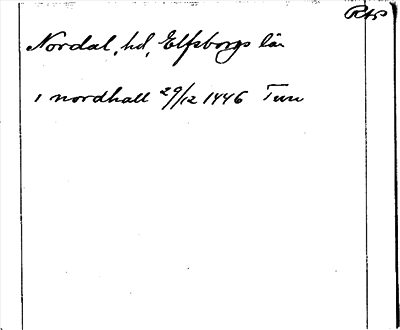 RAP
Nordal, hd, Elfsborgs län
1 nordhall 29/12 1446 Tun